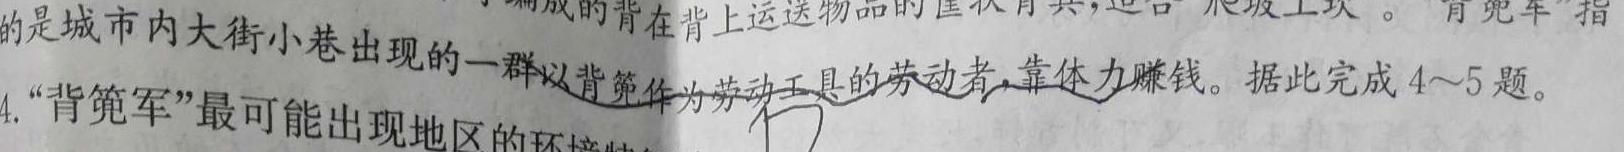 编成的背在背上运送物品的筐状背具,适合“爬坡上坎”。“背篼军”指
的是城市内大街小巷出现的一群以背篼作为劳动工具的劳动者,靠体力赚钱。据此完成4~5题。
4.“背篼军”最可能出现地区的环境特